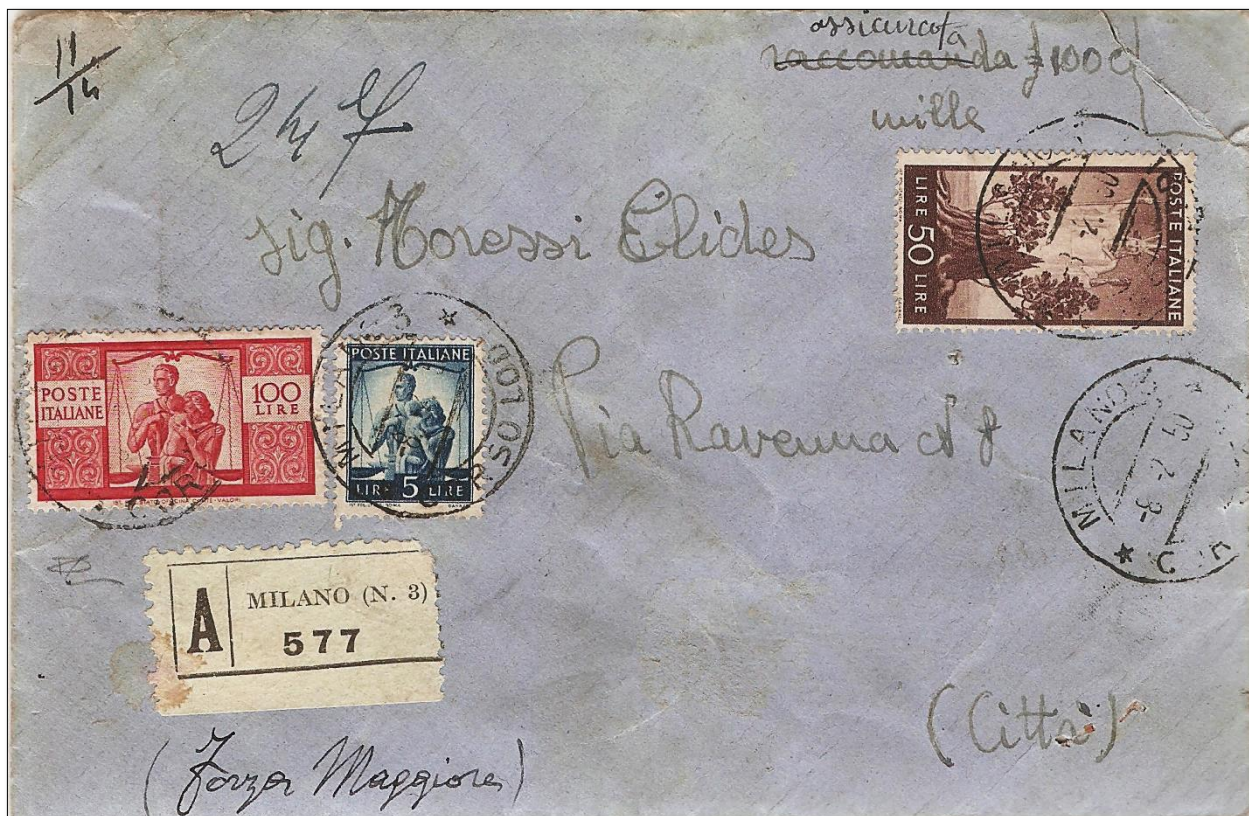 11/14
assicurata
raccomanda £ 1000
mille
24 f
sig. Moressi Elides
POSTE ITALIANE
LIRE 50 LIRE
POSTE
ITALIANE
100
LIRE
POSTE ITALIANE
LIRE 5 LIRE
MILANO 3
Via Ravenna N 8
MILANO
A
MILANO (N. 3)
577
(Città)
(Forza Maggiore)